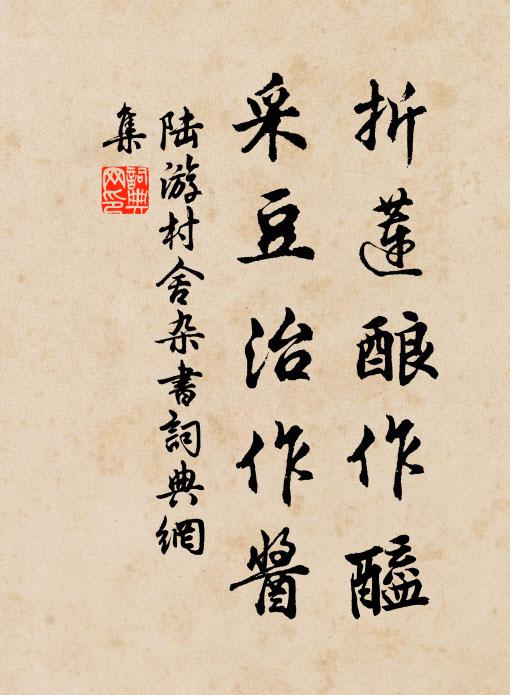 折蓮酿作醯
采豆治作醬
陆游村舍杂書詞典網
集
詞典
网印